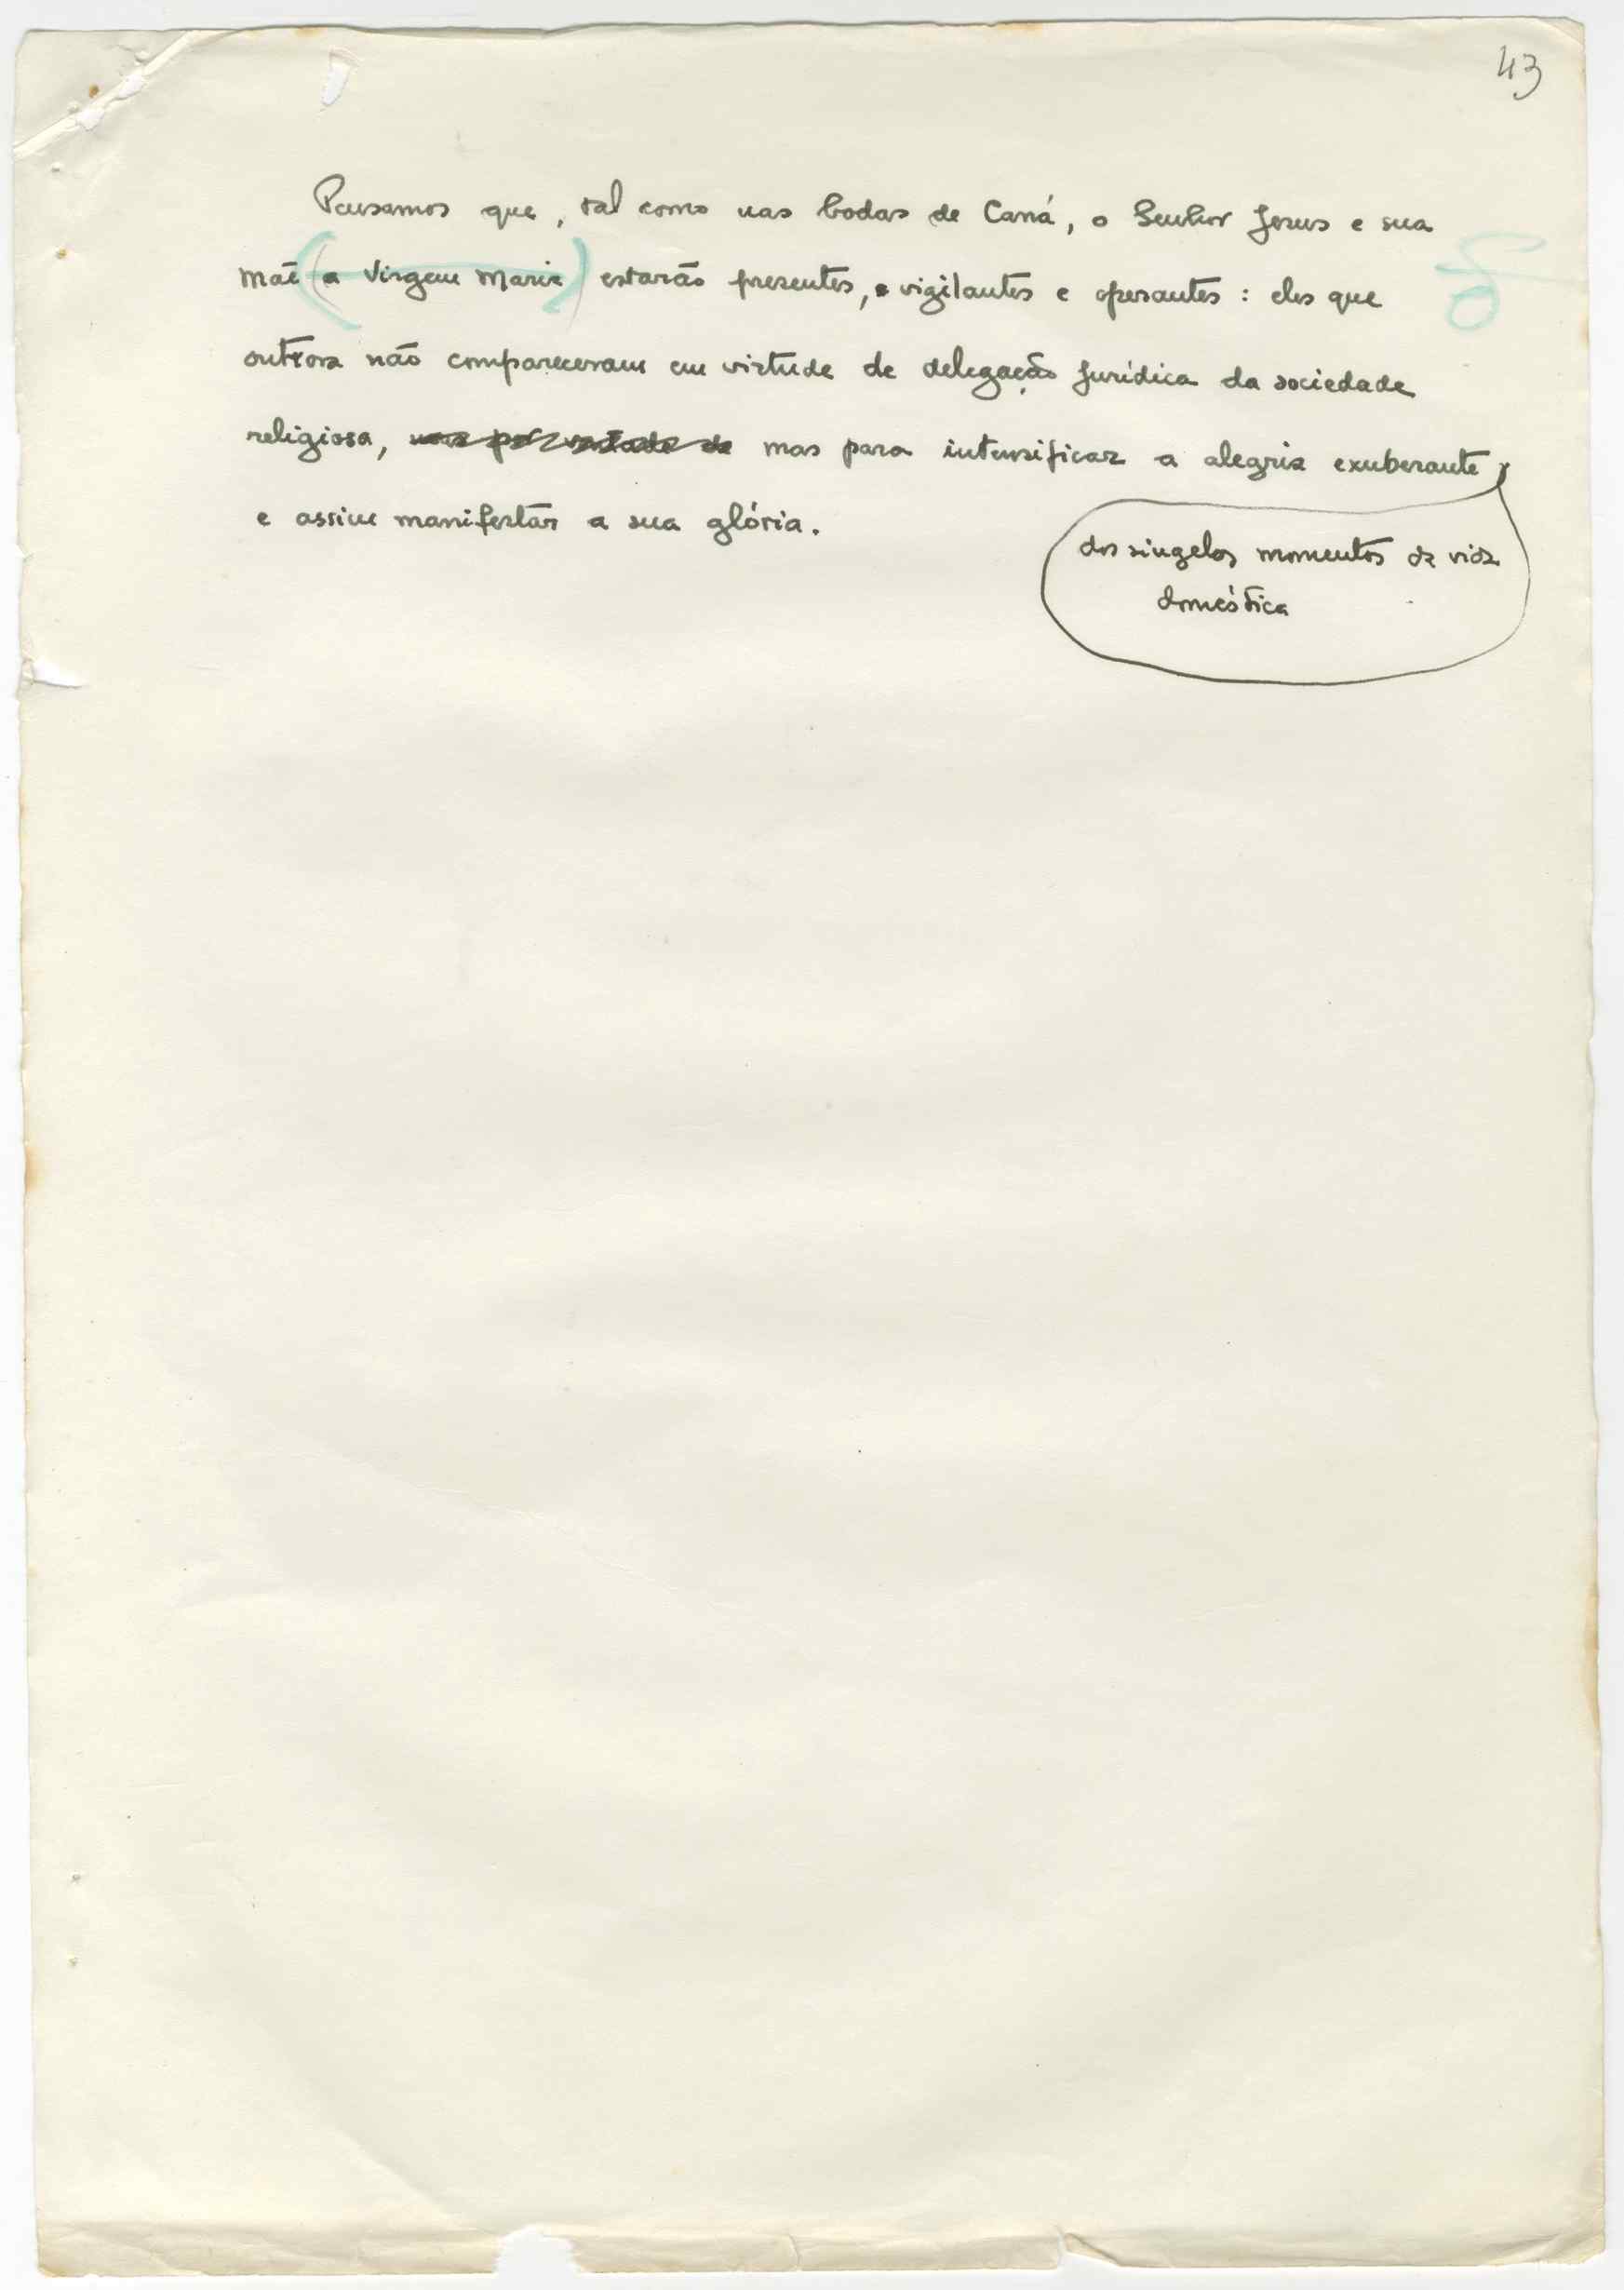 43
Pensamos que, tal como nas bodas de Caná, o Senhor Jesus e sua
mãe (a Virgem Maria) estarão presentes, vigilantes e operantes : eles que
outrora não compareceram em virtude de delegação jurídica da sociedade
religiosa, mas para intensificar a alegria exuberante
e assim manifestar a sua glória.
dos singelos momentos da vida
doméstica